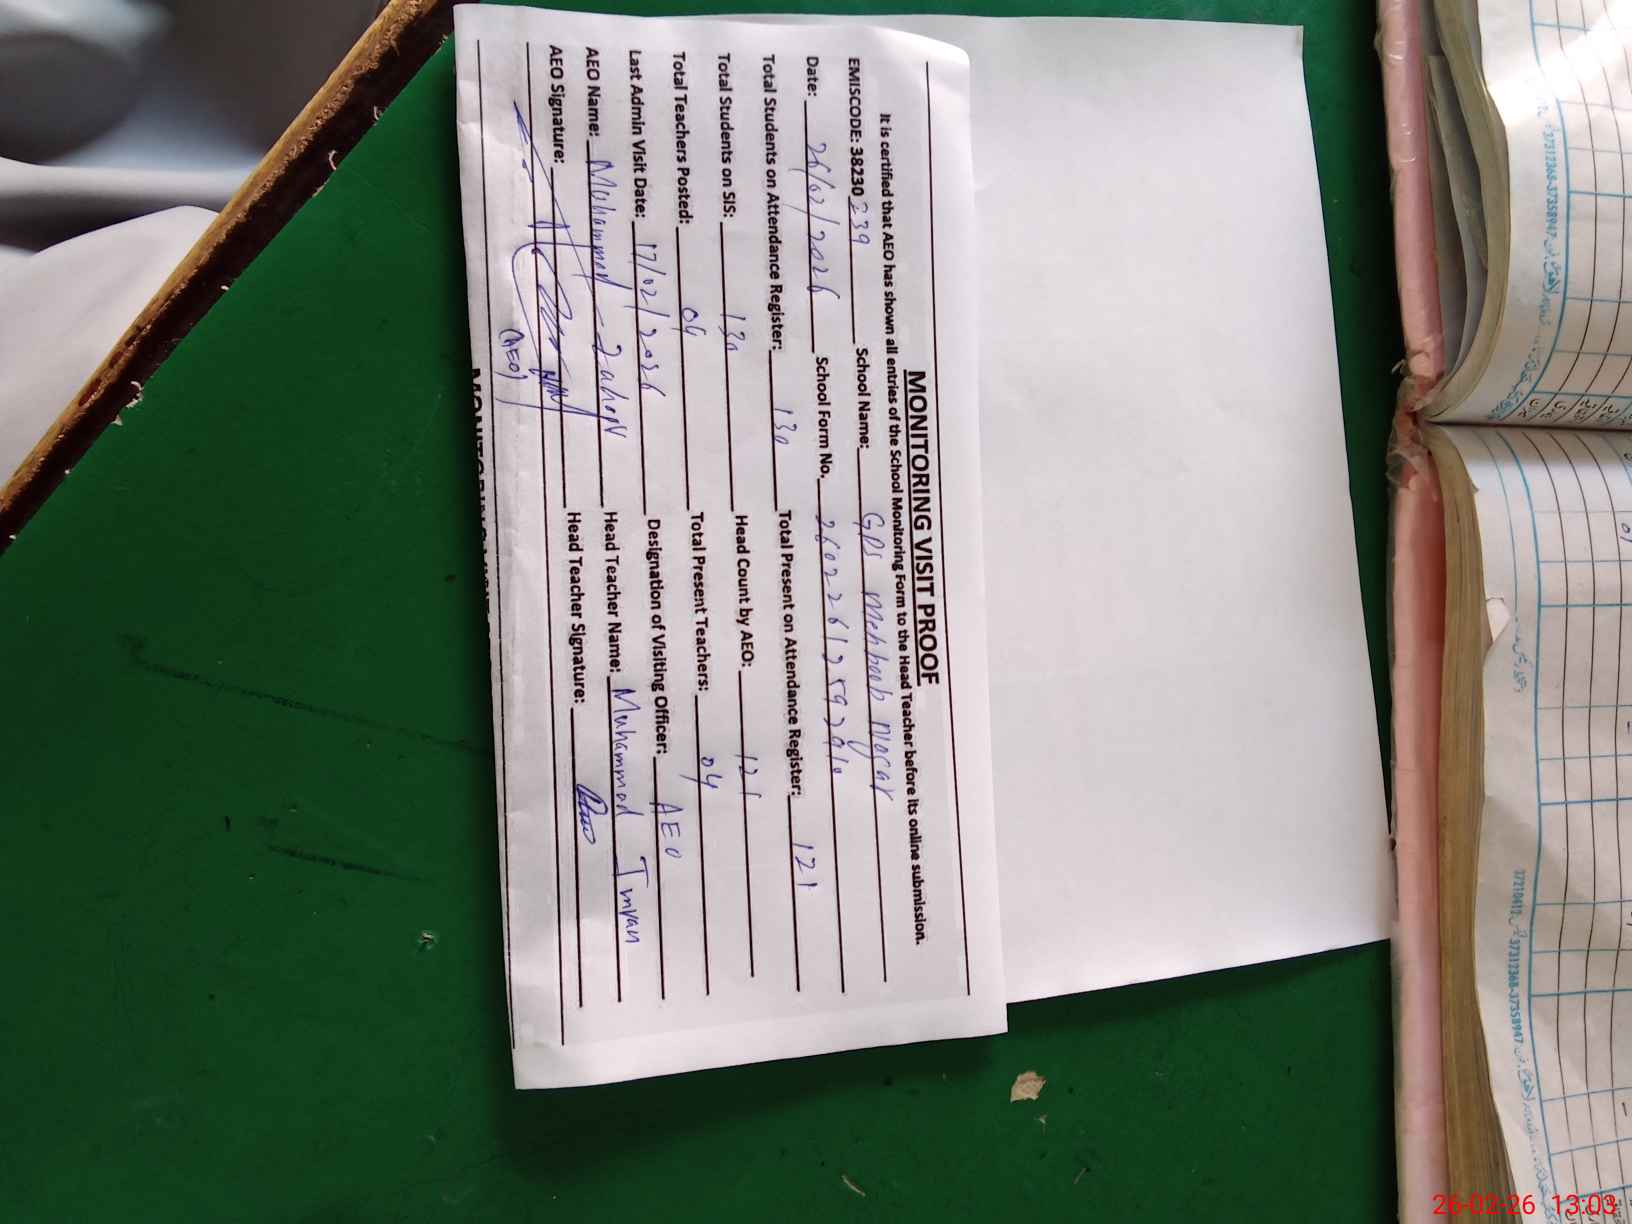 MONITORING VISIT PROOF
It is certified that AEO has shown all entries of the School Monitoring Form to the Head Teacher before its online submission.
EMISCODE: 38230239 School Name: GPS Mehboob Nagar
Date: 26/02/2026 School Form No.
Total Students on Attendance Register: 130 Total Present on Attendance Register: 121
Total Students on SIS: 130 Head Count by AEO: 121
Total Teachers Posted: 04 Total Present Teachers: 04
Last Admin Visit Date: 17/02/2026 Designation of Visiting Officer: AEO
AEO Name: Muhammad Zahoor Head Teacher Name: Muhammad Imran
AEO Signature: Head Teacher Signature:
(AEO)
37312368-37358947
37210412
37312368-37358947
26-02-26 13:03